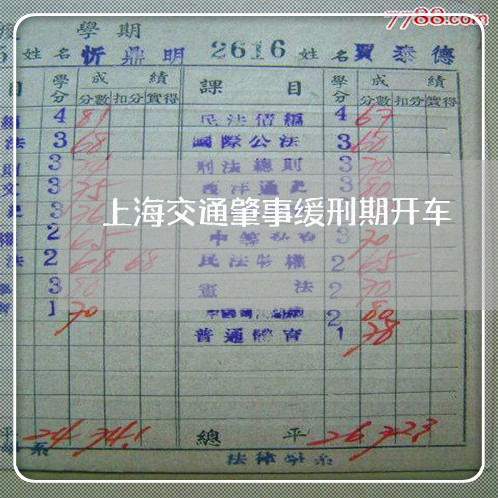 7788.com
學期
姓名 忻鼎明 2616 姓名 賈泰德
目 學分 成績 課目 學分 成績
分數 扣分 實得 分數 扣分 實得
4 81 民法債編 4 67
法 3 68 國際公法 3 60
3 刑法總則 3 70
3 75 西洋通史 3 80
上海交通肇事缓刑期开车
2 65 3 70
法 2 68 68 民法物權 2 65
3 80 憲法 2 70
1 70 2 80
普通體育 1 78
平 24 74.1 總平 26 72.3
系 法律學系